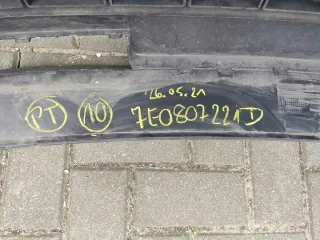 26.05.21
PT 10 7E0807221D